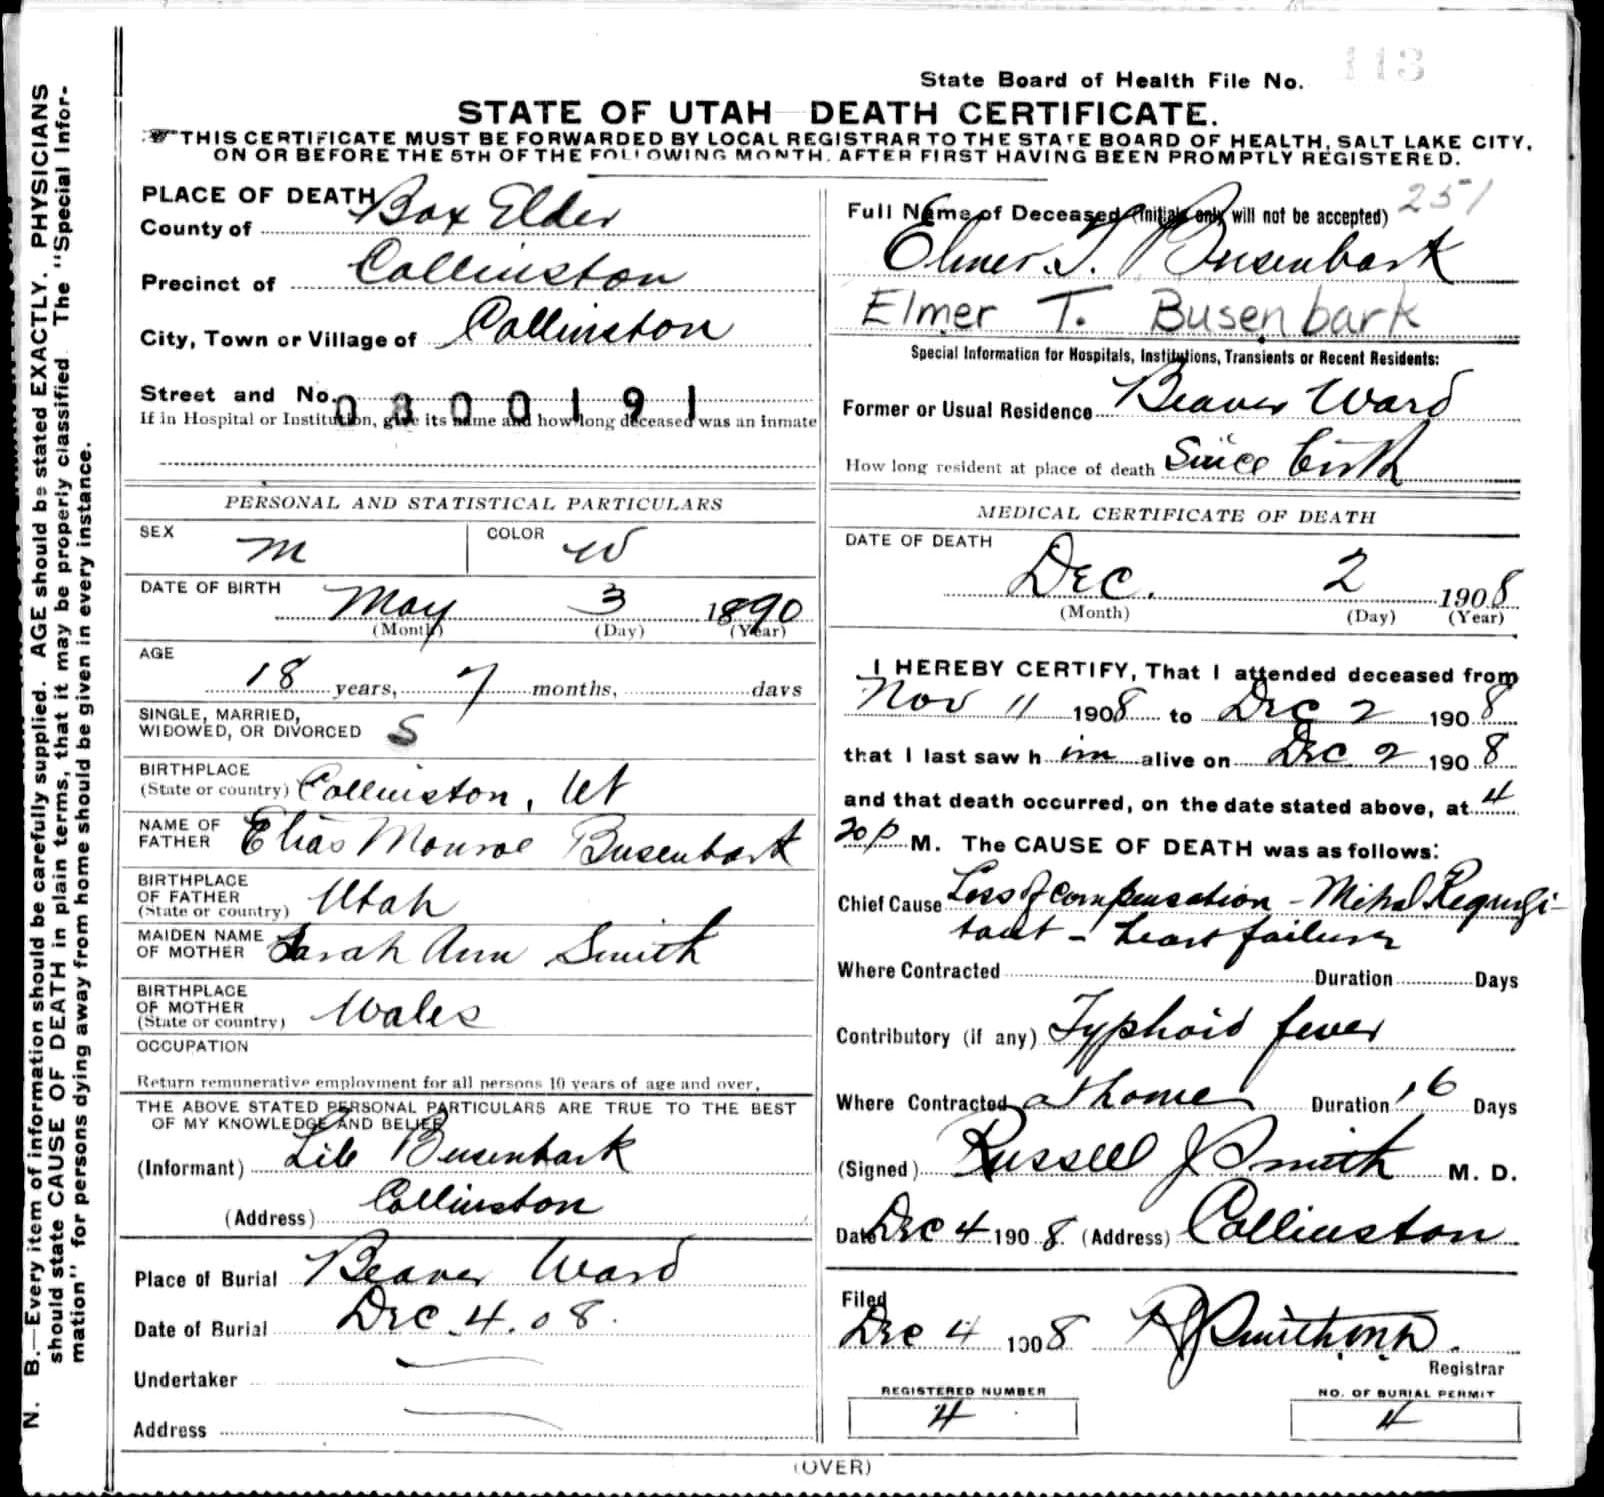 State Board of Health File No. 113
STATE OF UTAH DEATH CERTIFICATE.
THIS CERTIFICATE MUST BE FORWARDED BY LOCAL REGISTRAR TO THE STATE BOARD OF HEALTH, SALT LAKE CITY,
ON OR BEFORE THE 5TH OF THE FOLLOWING MONTH, AFTER FIRST HAVING BEEN PROMPTLY REGISTERED.
N. B.—Every item of information should be carefully supplied. AGE should be stated EXACTLY. PHYSICIANS
should state CAUSE OF DEATH in plain terms, that it may be properly classified The "Special Infor-
mation" for persons dying away from home should be given in every instance.
PLACE OF DEATH
County of Box Elder
Precinct of Collinston
City, Town or Village of Collinston
Street and No. 0300191
If in Hospital or Institution, give its name and how long deceased was an inmate
PERSONAL AND STATISTICAL PARTICULARS
SEX M COLOR W
DATE OF BIRTH
May 3 1890
(Month) (Day) (Year)
AGE
18 years, 7 months, days
SINGLE, MARRIED,
WIDOWED, OR DIVORCED S
BIRTHPLACE
(State or country) Collinston, Ut
NAME OF
FATHER Elias Monroe Busenbark
BIRTHPLACE
OF FATHER
(State or country) Utah
MAIDEN NAME
OF MOTHER Sarah Ann Smith
BIRTHPLACE
OF MOTHER
(State or country) Wales
OCCUPATION
Return remunerative employment for all persons 10 years of age and over.
THE ABOVE STATED PERSONAL PARTICULARS ARE TRUE TO THE BEST
OF MY KNOWLEDGE AND BELIEF
(Informant) Lile Busenbark
(Address) Collinston
Place of Burial Beaver Ward
Date of Burial Dec. 4. 08.
Undertaker
Address
251
Full Name of Deceased (Initials only will not be accepted)
Elmer. T. Busenbark
Elmer T. Busenbark
Special Information for Hospitals, Institutions, Transients or Recent Residents:
Former or Usual Residence Beaver Ward
How long resident at place of death Since birth
MEDICAL CERTIFICATE OF DEATH
DATE OF DEATH
Dec. 2 1908
(Month) (Day) (Year)
I HEREBY CERTIFY, That I attended deceased from
Nov 11 1908 to Dec 2 1908
that I last saw h im alive on Dec 2 1908
and that death occurred, on the date stated above, at 4
20 p M. The CAUSE OF DEATH was as follows:
Chief Cause Loss of compensation - Mitral Regurgi-
tant - heart failure
Where Contracted Duration Days
Contributory (if any) Typhoid fever
Where Contracted at home Duration 16 Days
(Signed) Russell J Smith M. D.
Date Dec 4 1908 (Address) Collinston
Filed
Dec 4 1908 R J Smith M.D.
Registrar
REGISTERED NUMBER
4
NO. OF BURIAL PERMIT
4
(OVER)